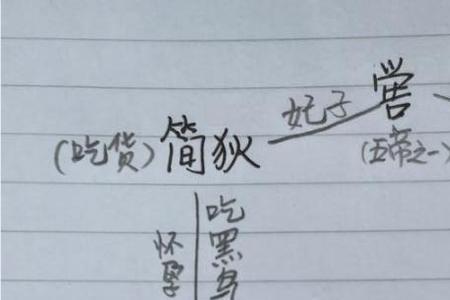 妃子
喾
(吃货)简狄
(五帝之一)
吃黑鸟
怀孕